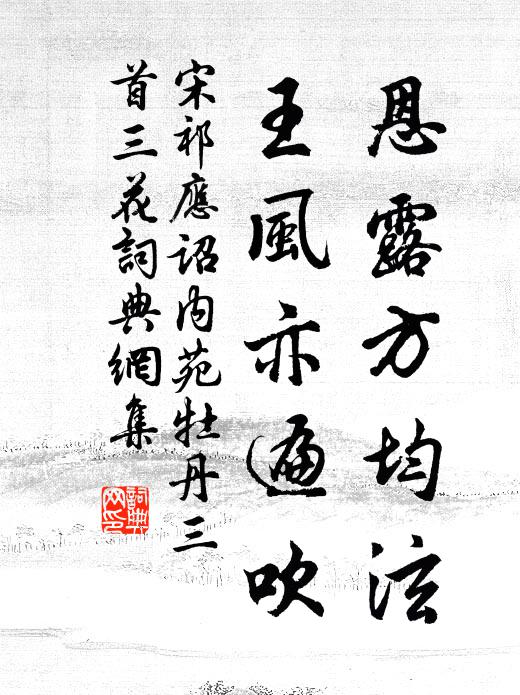 恩露方均泫
王風亦遍吹
宋祁應詔内苑牡丹三
首三花詞典網集
詞典
网印